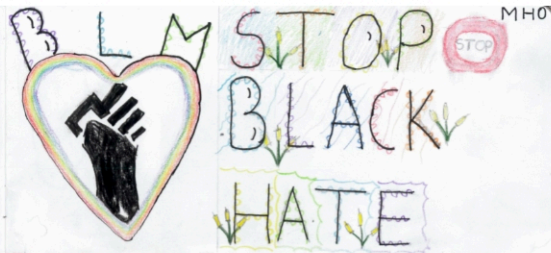 BLM
STOP
STOP
MHO
BLACK
HATE